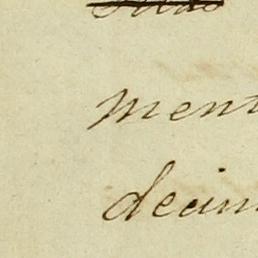 ment
decim